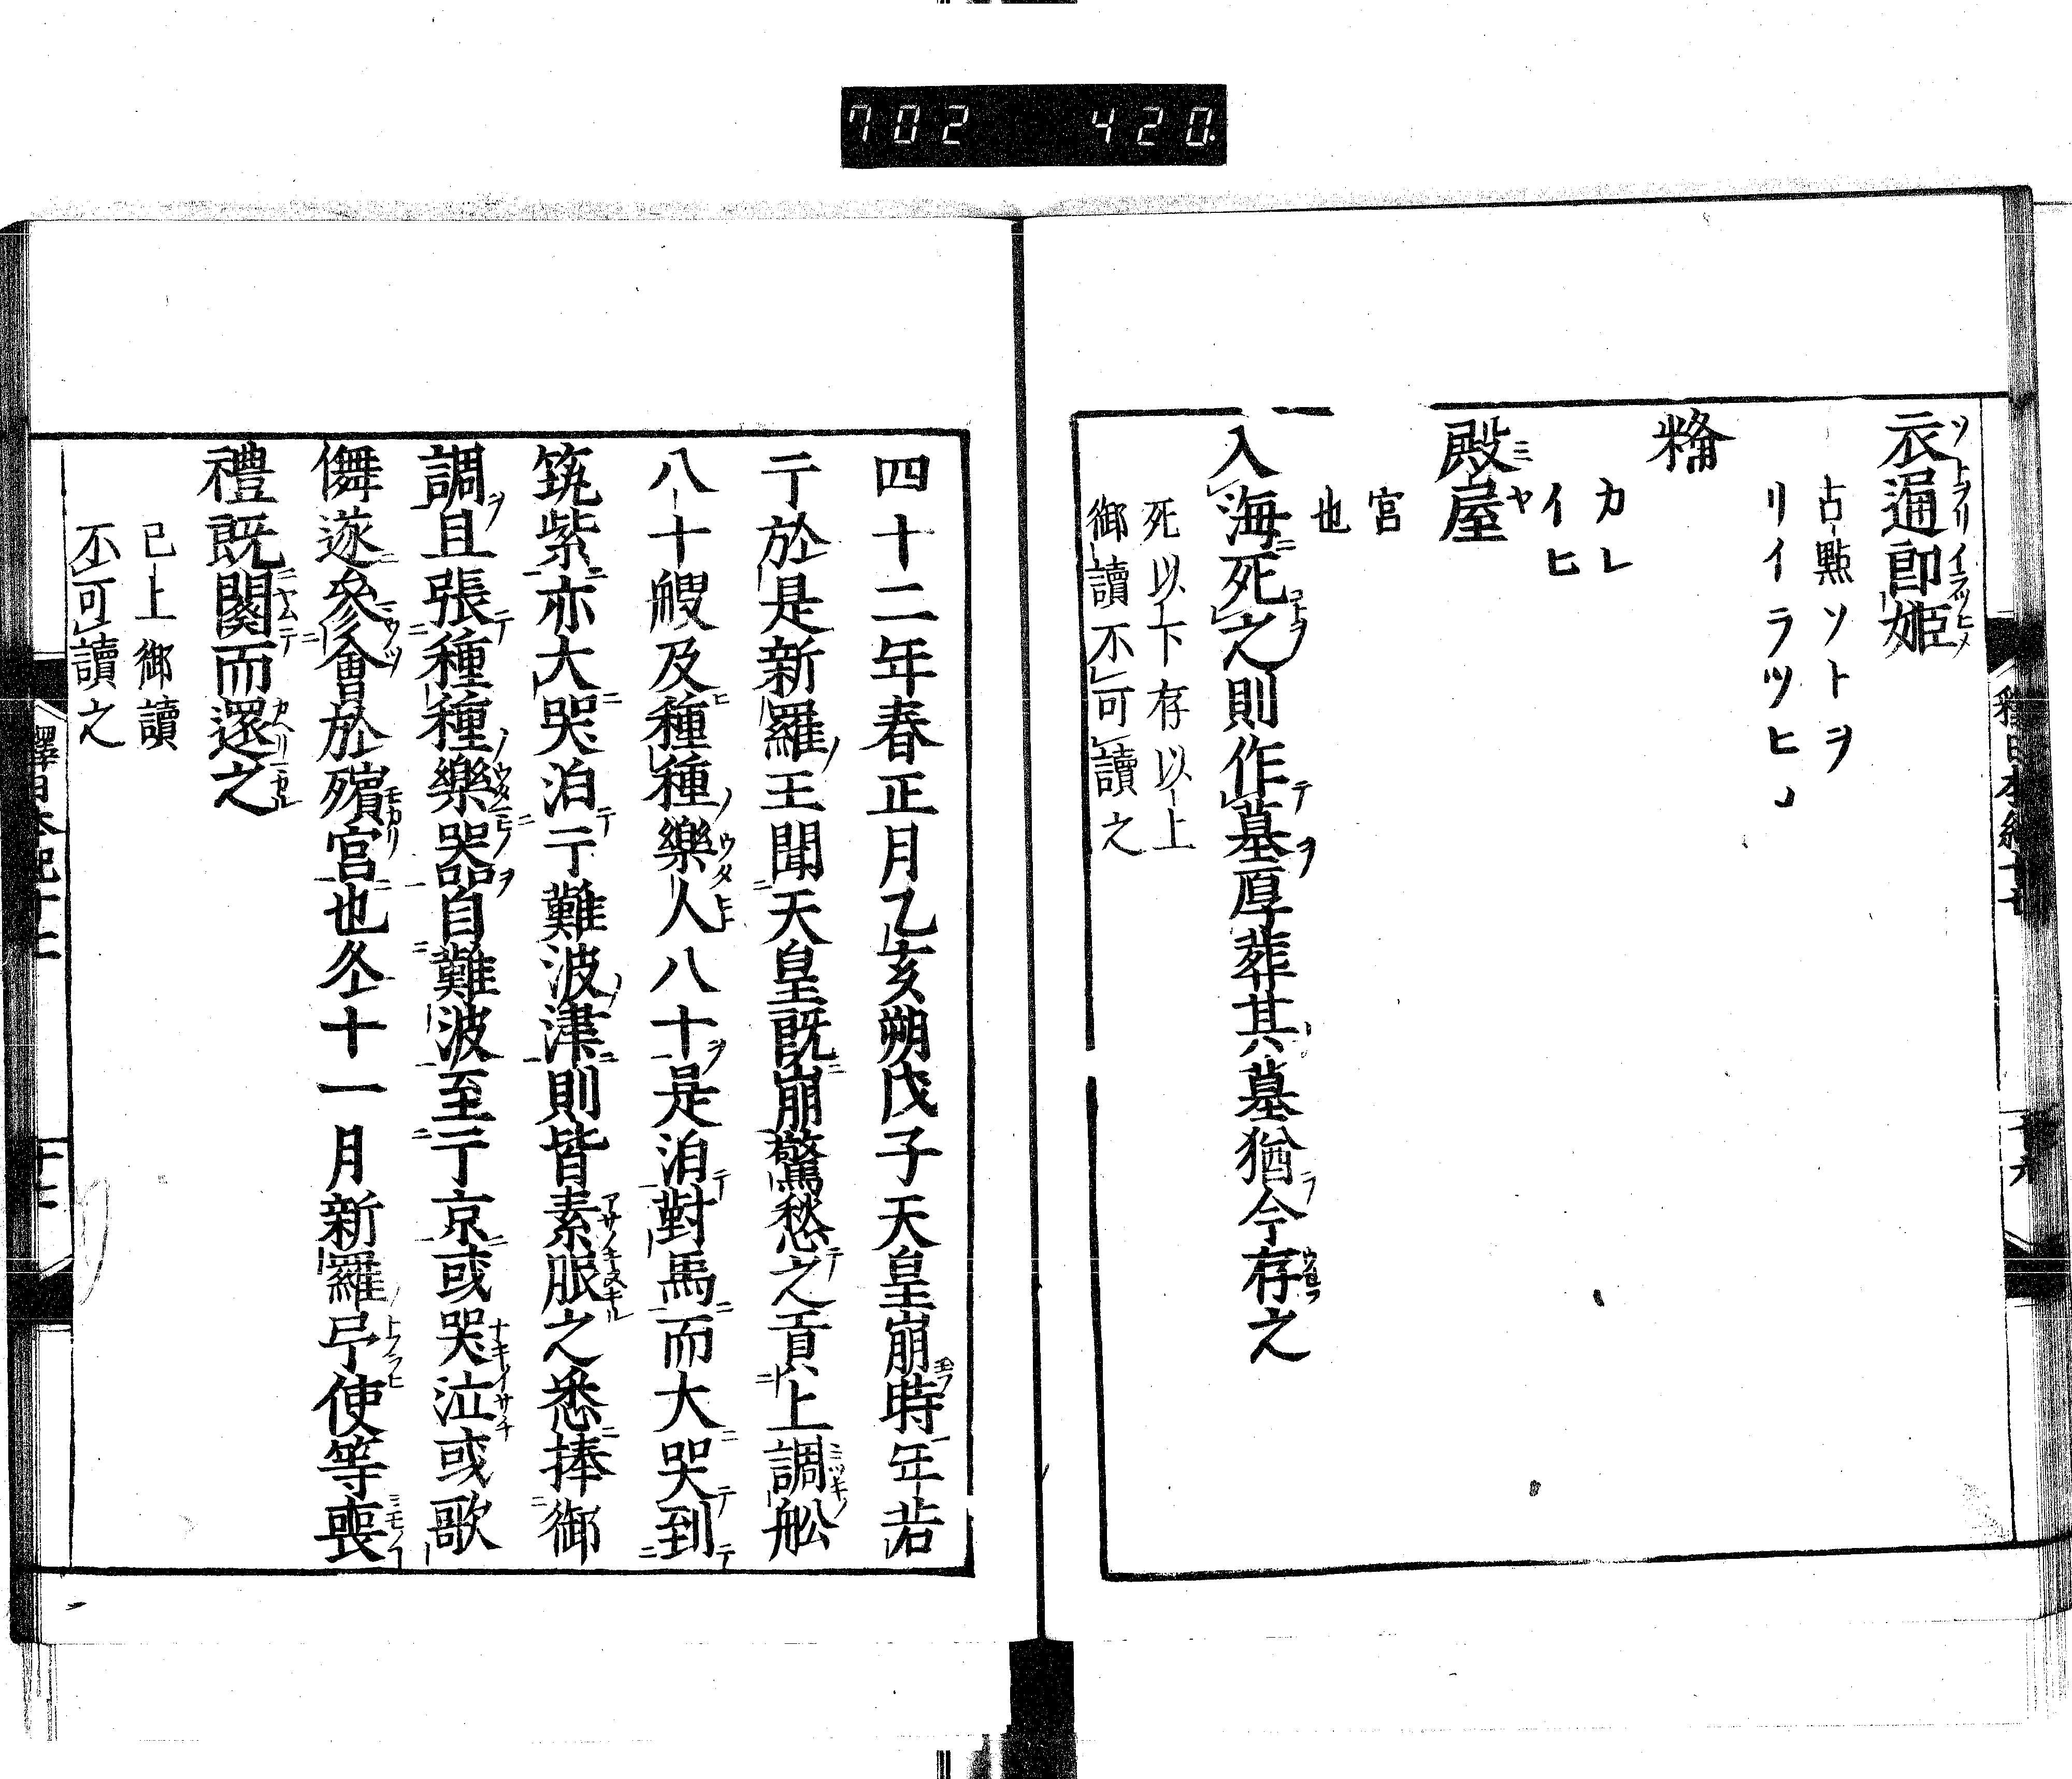 702 420
衣通郎姫
占點ソトヲ
リイラツヒメ
糒
カレ
イヒ
殿屋
官
也
入海死之則作墓厚葬其墓猶今存之
死以下存以上
御讀不可讀之
四十二年春正月乙亥朔戊子天皇崩時年若
干於是新羅王聞天皇既崩驚愁之貢上調舩
八十艘及種種樂人八十是泊對馬而大哭到
筑紫亦大哭泊于難波津則皆素服之悉捧御
調且張種種樂器自難波至于京或哭泣或歌
儛遂參會於殯宮也冬十一月新羅弔使等喪
禮既闋而還之
已上御讀
不可讀之